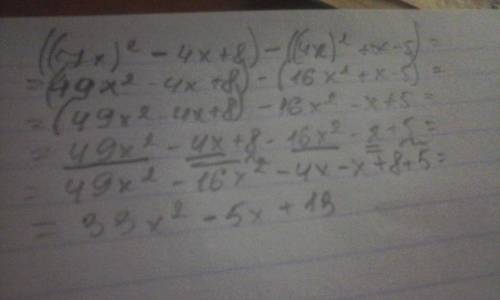 ((-7x)² - 4x+8) - ((4x)² + x - 5) =
= (49x² - 4x+8) - (16x² + x - 5) =
= (49x² - 4x+8) - 16x² - x + 5 =
= 49x² - 4x + 8 - 16x² - x + 5 =
= 49x² - 16x² - 4x - x + 8 + 5 =
= 33x² - 5x + 13